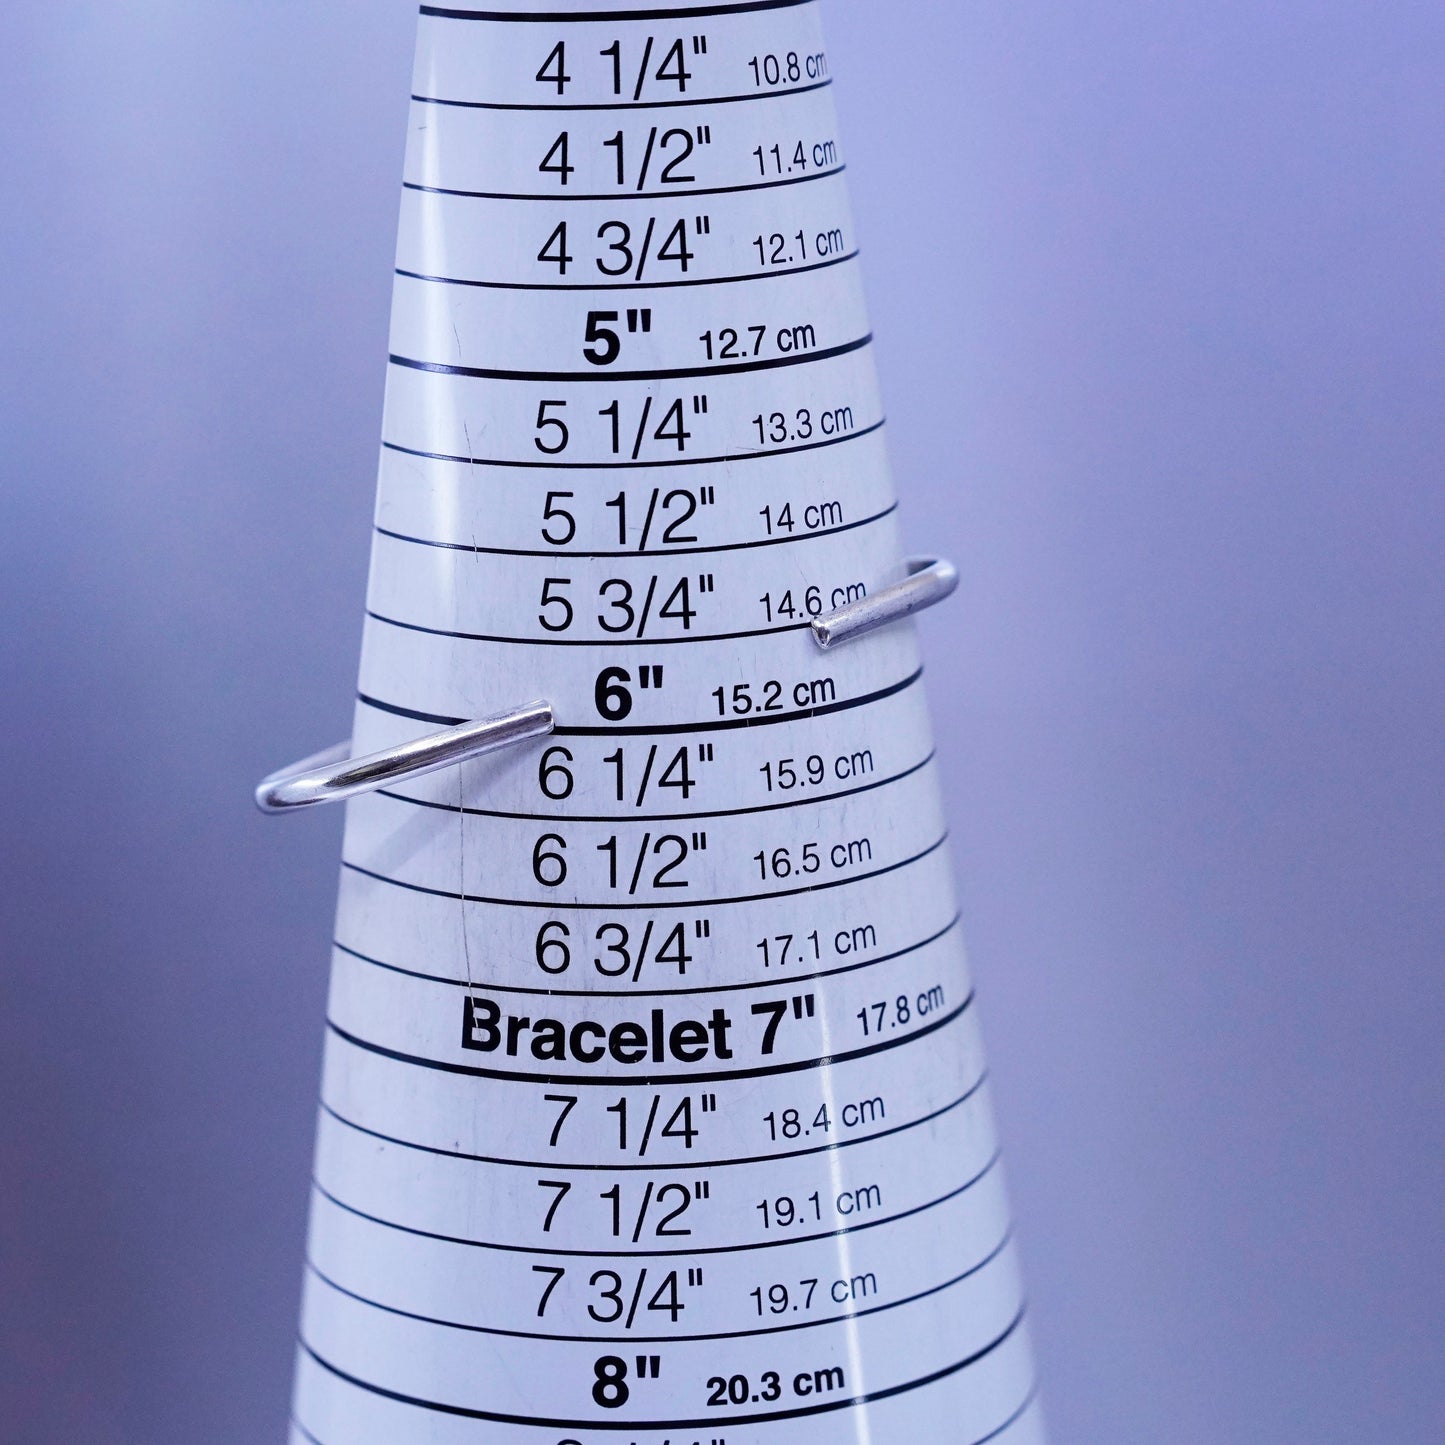 4 1/4" 10.8 cm
4 1/2" 11.4 cm
4 3/4" 12.1 cm
5" 12.7 cm
5 1/4" 13.3 cm
5 1/2" 14 cm
5 3/4" 14.6 cm
6" 15.2 cm
6 1/4" 15.9 cm
6 1/2" 16.5 cm
6 3/4" 17.1 cm
Bracelet 7" 17.8 cm
7 1/4" 18.4 cm
7 1/2" 19.1 cm
7 3/4" 19.7 cm
8" 20.3 cm